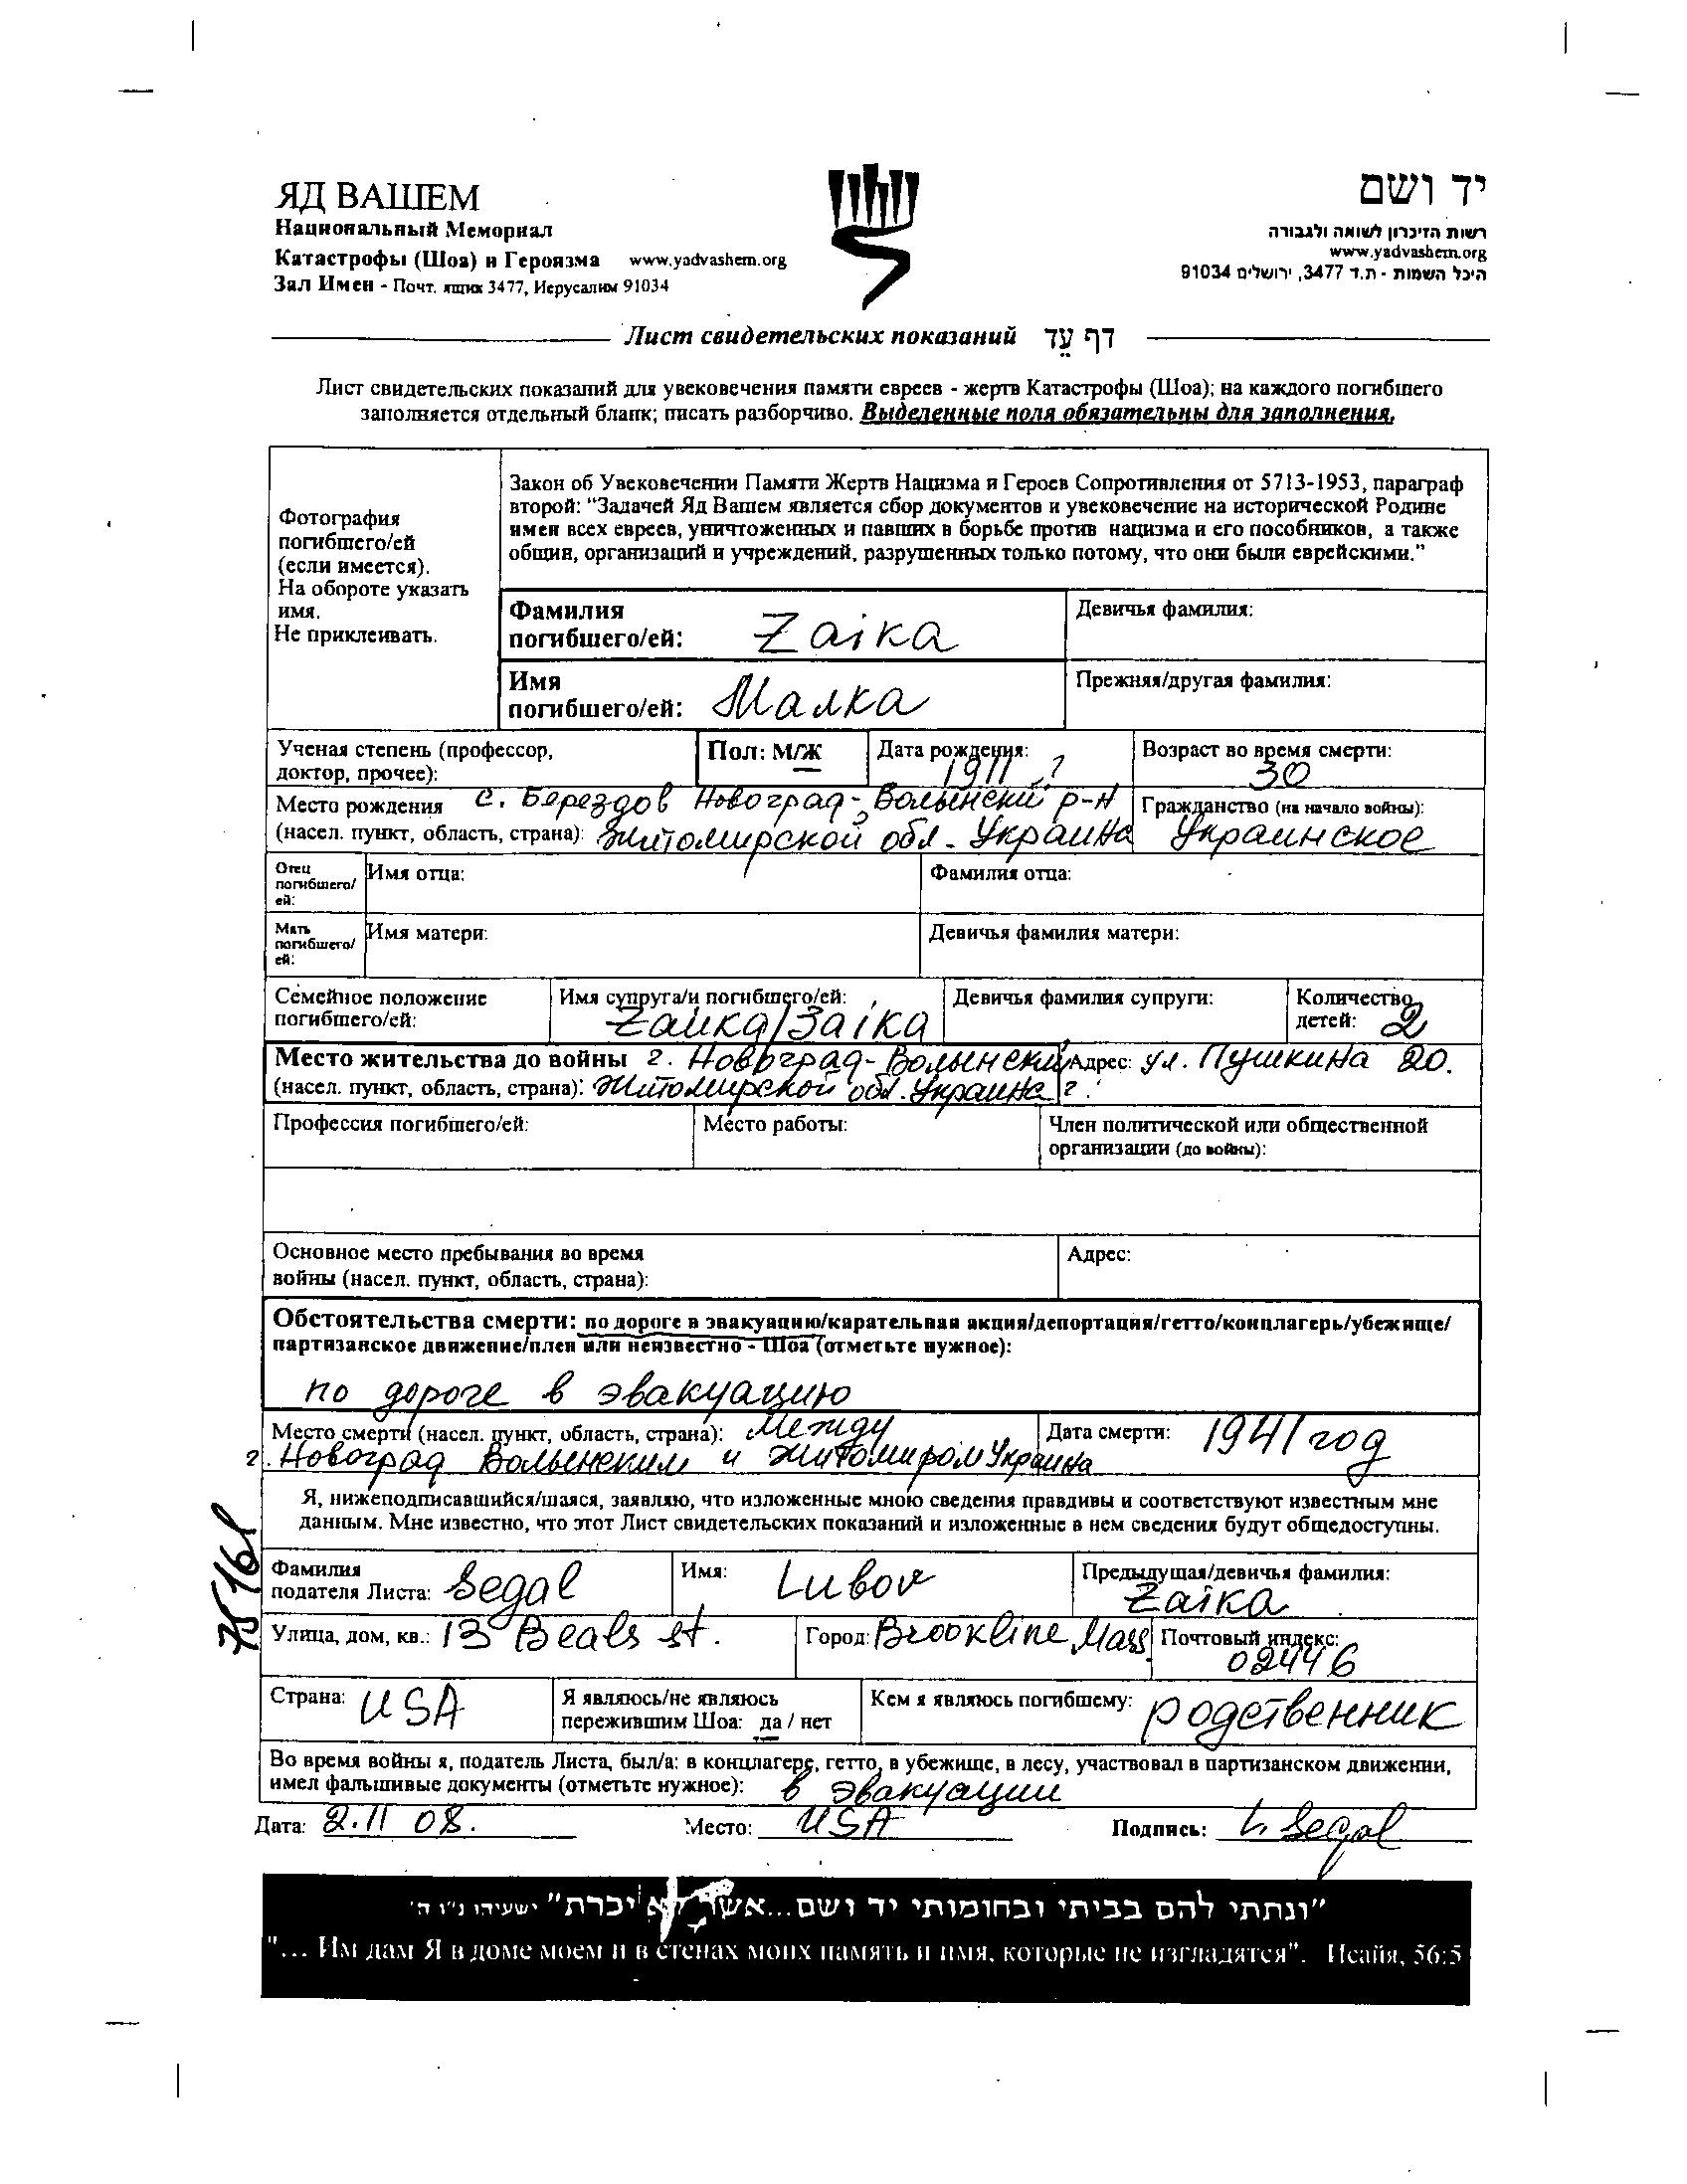 ЯД ВАШЕМ
Национальный Мемориал
Катастрофы (Шоа) и Героизма www.yadvashem.org
Зал Имен - Почт. ящик 3477, Иерусалим 91034
יד ושם
רשות הזיכרון לשואה ולגבורה
www.yadvashem.org
היכל השמות - ת.ד 3477, ירושלים 91034
Лист свидетельских показаний דף עֵד
Лист свидетельских показаний для увековечения памяти евреев - жертв Катастрофы (Шоа); на каждого погибшего
заполняется отдельный бланк; писать разборчиво. Выделенные поля обязательны для заполнения.
Фотография
погибшего/ей
(если имеется).
На обороте указать
имя.
Не приклеивать.
Закон об Увековечении Памяти Жертв Нацизма и Героев Сопротивления от 5713-1953, параграф
второй: "Задачей Яд Вашем является сбор документов и увековечение на исторической Родине
имен всех евреев, уничтоженных и павших в борьбе против нацизма и его пособников, а также
общин, организаций и учреждений, разрушенных только потому, что они были еврейскими."
Фамилия
погибшего/ей: Zaika
Девичья фамилия:
Имя
погибшего/ей: Малка
Прежняя/другая фамилия:
Ученая степень (профессор,
доктор, прочее):
Пол: М/Ж
Дата рождения:
1911 ?
Возраст во время смерти:
30
Место рождения с. Берездов Новоград-Волынский р-н
(насел. пункт, область, страна): Житомирской обл. Украина
Гражданство (на начало войны):
Украинское
Отец
погибшего/
ей:
Имя отца:
Фамилия отца:
Мать
погибшего/
ей:
Имя матери:
Девичья фамилия матери:
Семейное положение
погибшего/ей:
Имя супруга/и погибшего/ей:
Zaика/Заіка
Девичья фамилия супруги:
Количество
детей: 2
Место жительства до войны г. Новоград-Волынский
(насел. пункт, область, страна): Житомирской обл. Украина
Адрес: ул. Пушкина 20.
?
Профессия погибшего/ей:
Место работы:
Член политической или общественной
организации (до войны):
Основное место пребывания во время
войны (насел. пункт, область, страна):
Адрес:
Обстоятельства смерти: по дороге в эвакуацию/карательная акция/депортация/гетто/концлагерь/убежище/
партизанское движение/плен или неизвестно - Шоа (отметьте нужное):
по дороге в эвакуацию
Место смерти (насел. пункт, область, страна): Между
г. Новоград Волынским и Житомиром Украина
Дата смерти: 1941 год
Я, нижеподписавшийся/шаяся, заявляю, что изложенные мною сведения правдивы и соответствуют известным мне
данным. Мне известно, что этот Лист свидетельских показаний и изложенные в нем сведения будут общедоступны.
Фамилия
подателя Листа: Segal
Имя: Lubov
Предыдущая/девичья фамилия:
Zaika
Улица, дом, кв.: 13 Beals st.
Город: Brookline, Mass
Почтовый индекс:
02446
Страна: USA
Я являюсь/не являюсь
пережившим Шоа: да / нет
Кем я являюсь погибшему: родственник
Во время войны я, податель Листа, был/а: в концлагере, гетто, в убежище, в лесу, участвовал в партизанском движении,
имел фальшивые документы (отметьте нужное): в эвакуации
Дата: 2.11 08. Место: USA Подпись: L. Segal
"ונתתי להם בביתי ובחומותי יד ושם...אשר לא יכרת" ישעיהו נ"ו ה'
"... Им дам Я в доме моем и в стенах моих память и имя, которые не изгладятся". Исайя, 56:5